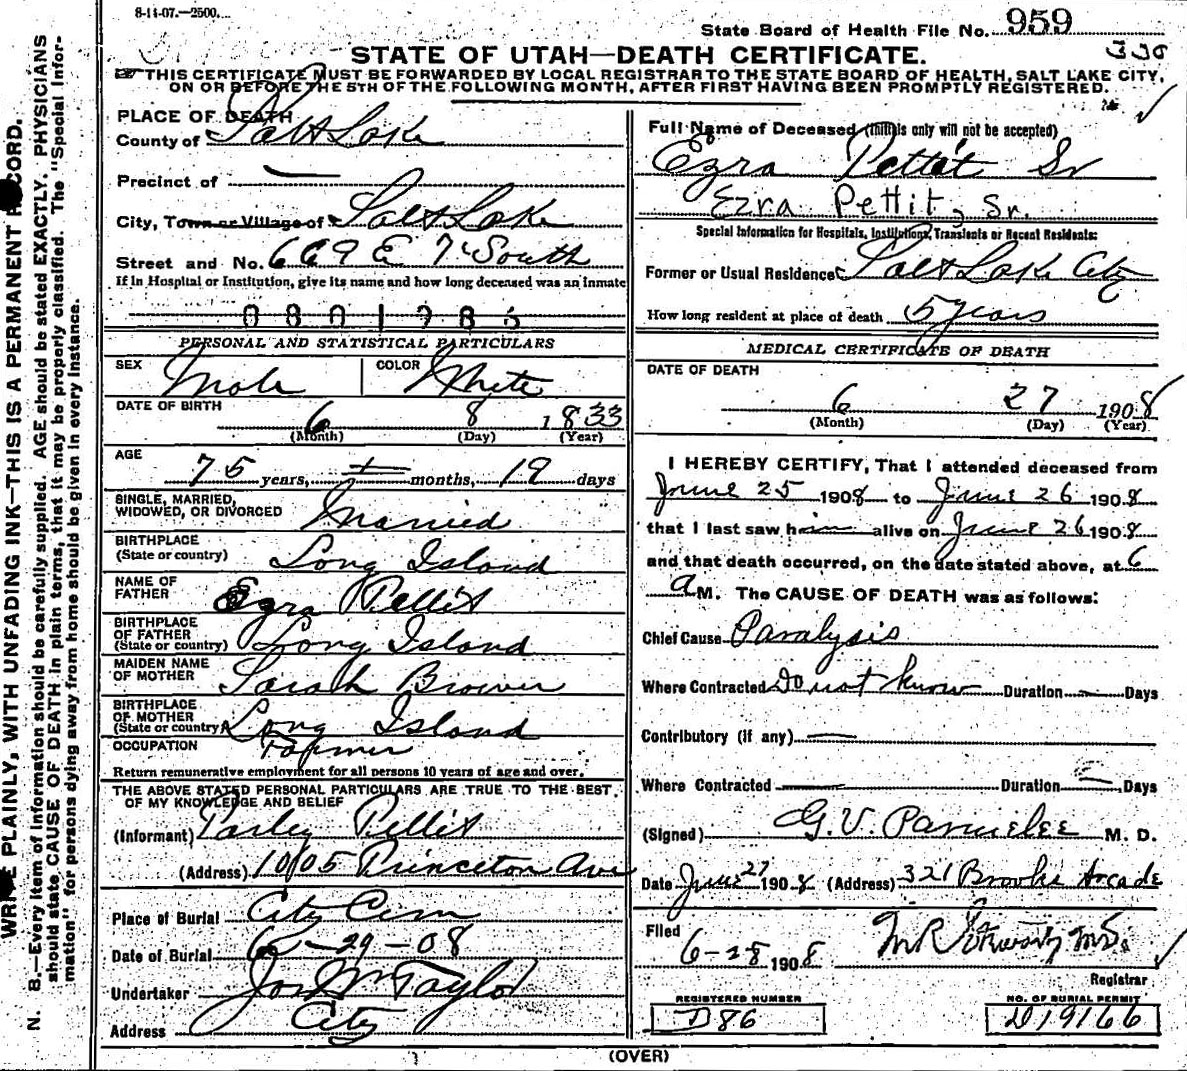 8-14-07.—2500.
State Board of Health File No. 959
336
STATE OF UTAH—DEATH CERTIFICATE.
THIS CERTIFICATE MUST BE FORWARDED BY LOCAL REGISTRAR TO THE STATE BOARD OF HEALTH, SALT LAKE CITY,
ON OR BEFORE THE 5TH OF THE FOLLOWING MONTH, AFTER FIRST HAVING BEEN PROMPTLY REGISTERED.
WRITE PLAINLY, WITH UNFADING INK—THIS IS A PERMANENT RECORD.
N. B.—Every item of information should be carefully supplied. AGE should be stated EXACTLY. PHYSICIANS
should state CAUSE OF DEATH in plain terms, that it may be properly classified. The "Special Infor-
mation" for persons dying away from home should be given in every instance.
PLACE OF DEATH
County of Salt Lake
Precinct of —
City, Town or Village of Salt Lake
Street and No. 669 E 7th South
If in Hospital or Institution, give its name and how long deceased was an inmate
0801985
PERSONAL AND STATISTICAL PARTICULARS
SEX Male COLOR White
DATE OF BIRTH 6 8 1833
(Month) (Day) (Year)
AGE
75 years, — months, 19 days
SINGLE, MARRIED,
WIDOWED, OR DIVORCED Married
BIRTHPLACE
(State or country) Long Island
NAME OF
FATHER Ezra Pettit
BIRTHPLACE
OF FATHER
(State or country) Long Island
MAIDEN NAME
OF MOTHER Sarah Brower
BIRTHPLACE
OF MOTHER
(State or country) Long Island
OCCUPATION Farmer
Return remunerative employment for all persons 10 years of age and over.
THE ABOVE STATED PERSONAL PARTICULARS ARE TRUE TO THE BEST
OF MY KNOWLEDGE AND BELIEF
(Informant) Parley Pettit
(Address) 1005 Princeton Ave
Place of Burial City Cem
Date of Burial 6-29-08
Undertaker Jos Wm Taylor
Address City
Full Name of Deceased (Initials only will not be accepted)
Ezra Pettit Sr
Ezra Pettit, Sr.
Special Information for Hospitals, Institutions, Transients or Recent Residents:
Former or Usual Residence Salt Lake City
How long resident at place of death 5 years
MEDICAL CERTIFICATE OF DEATH
DATE OF DEATH
6 27 1908
(Month) (Day) (Year)
I HEREBY CERTIFY, That I attended deceased from
June 25 1908 to June 26 1908
that I last saw him alive on June 26 1908
and that death occurred, on the date stated above, at 6
a M. The CAUSE OF DEATH was as follows:
Chief Cause Paralysis
Where Contracted Do not know Duration — Days
Contributory (if any) —
Where Contracted — Duration — Days
(Signed) G. V. Parmelee M. D.
Date June 27 1908 (Address) 321 Brooks Arcade
Filed
6-28 1908 M R M.D.
Registrar
REGISTERED NUMBER
D86
NO. OF BURIAL PERMIT
D19166
(OVER)